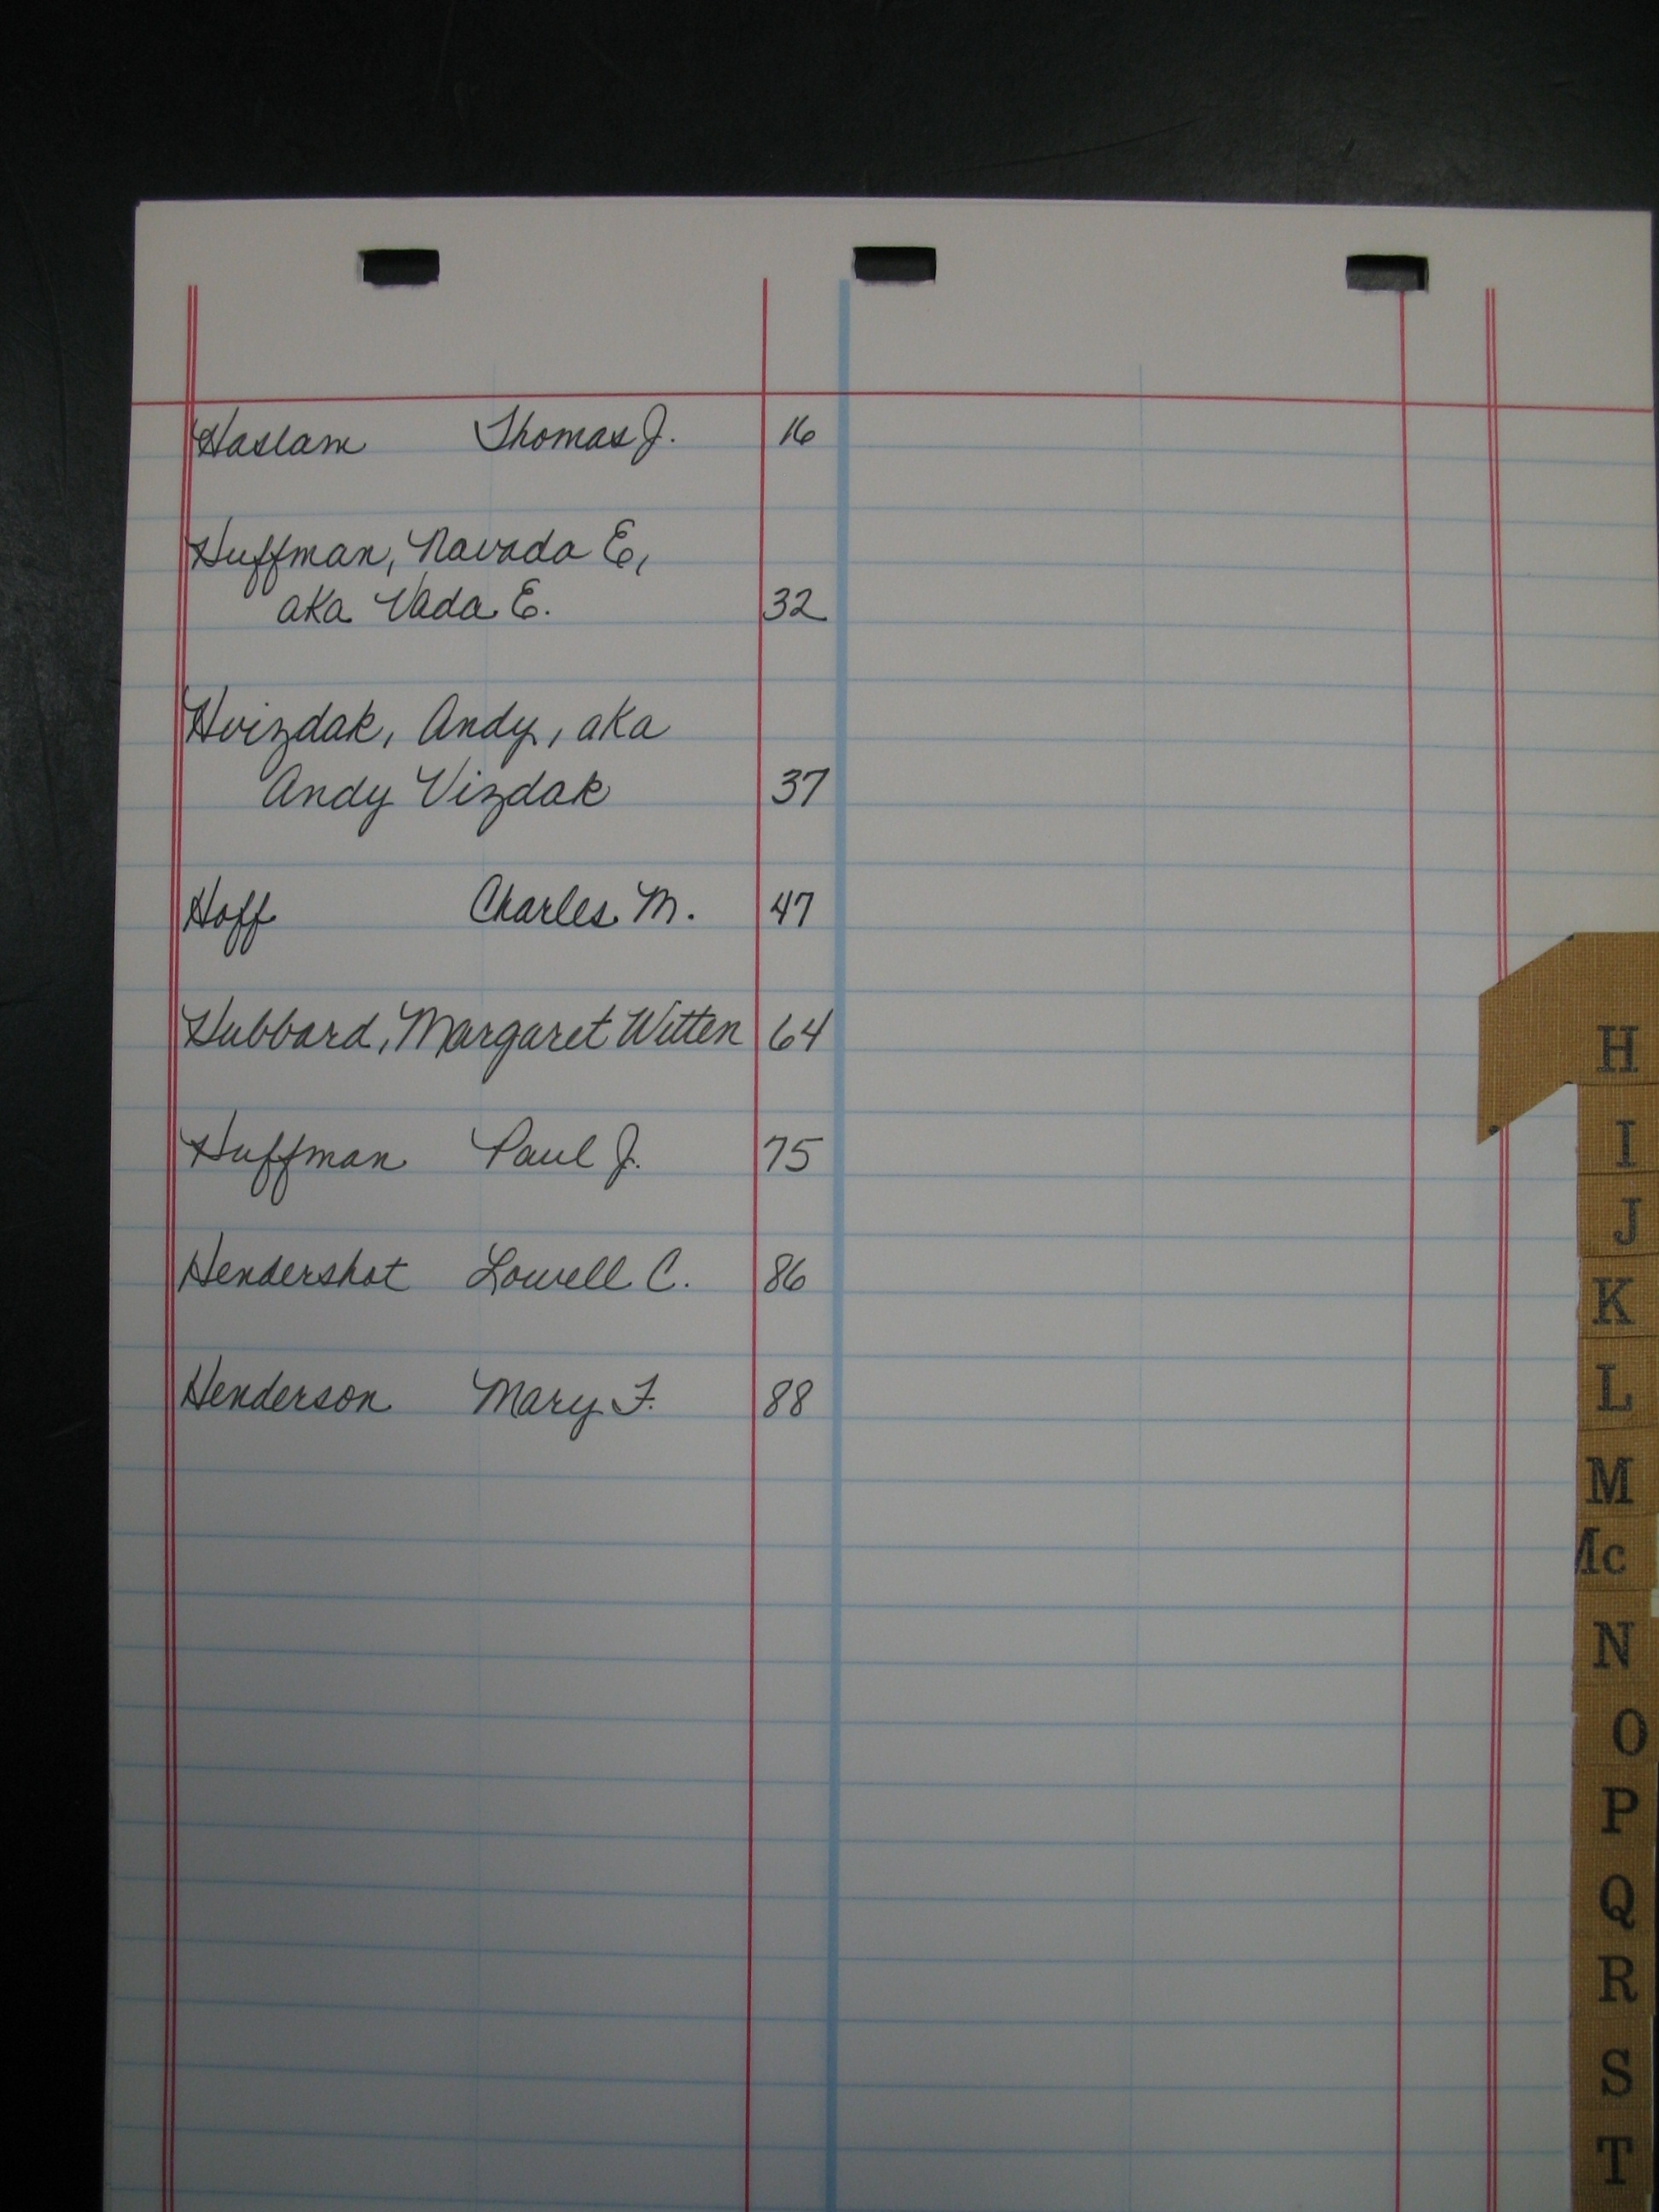 Haslam Thomas J. 16
Huffman, Navada E,
aka Vada E. 32
Hvizdak, Andy, aka
Andy Vizdak 37
Hoff Charles M. 47
Hubbard, Margaret Witten 64
Huffman Paul J. 75
Hendershot Lowell C. 86
Henderson Mary F. 88
H
I
J
K
L
M
Mc
N
O
P
Q
R
S
T